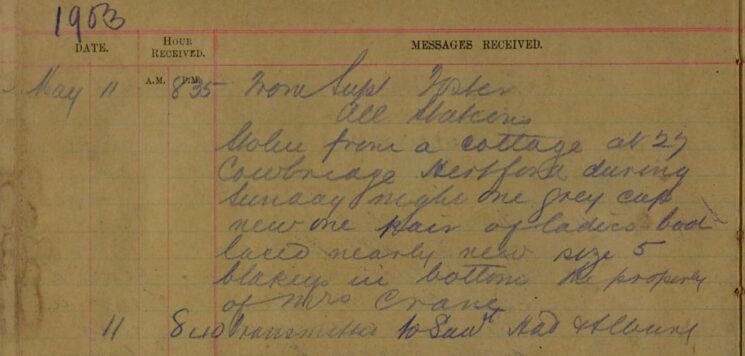 1903
DATE. HOUR RECEIVED. MESSAGES RECEIVED.
A.M. P.M.
May 11 8 35 From Supt Foster
All Stations
Stolen from a cottage at 27
Cowbridge Hertford during
Sunday night one grey cap
new one pair of ladies boot
laced nearly new size 5
blakeys in bottom the property
of Mrs Crane
11 8 40 Transmitted to Saw Had & Albans